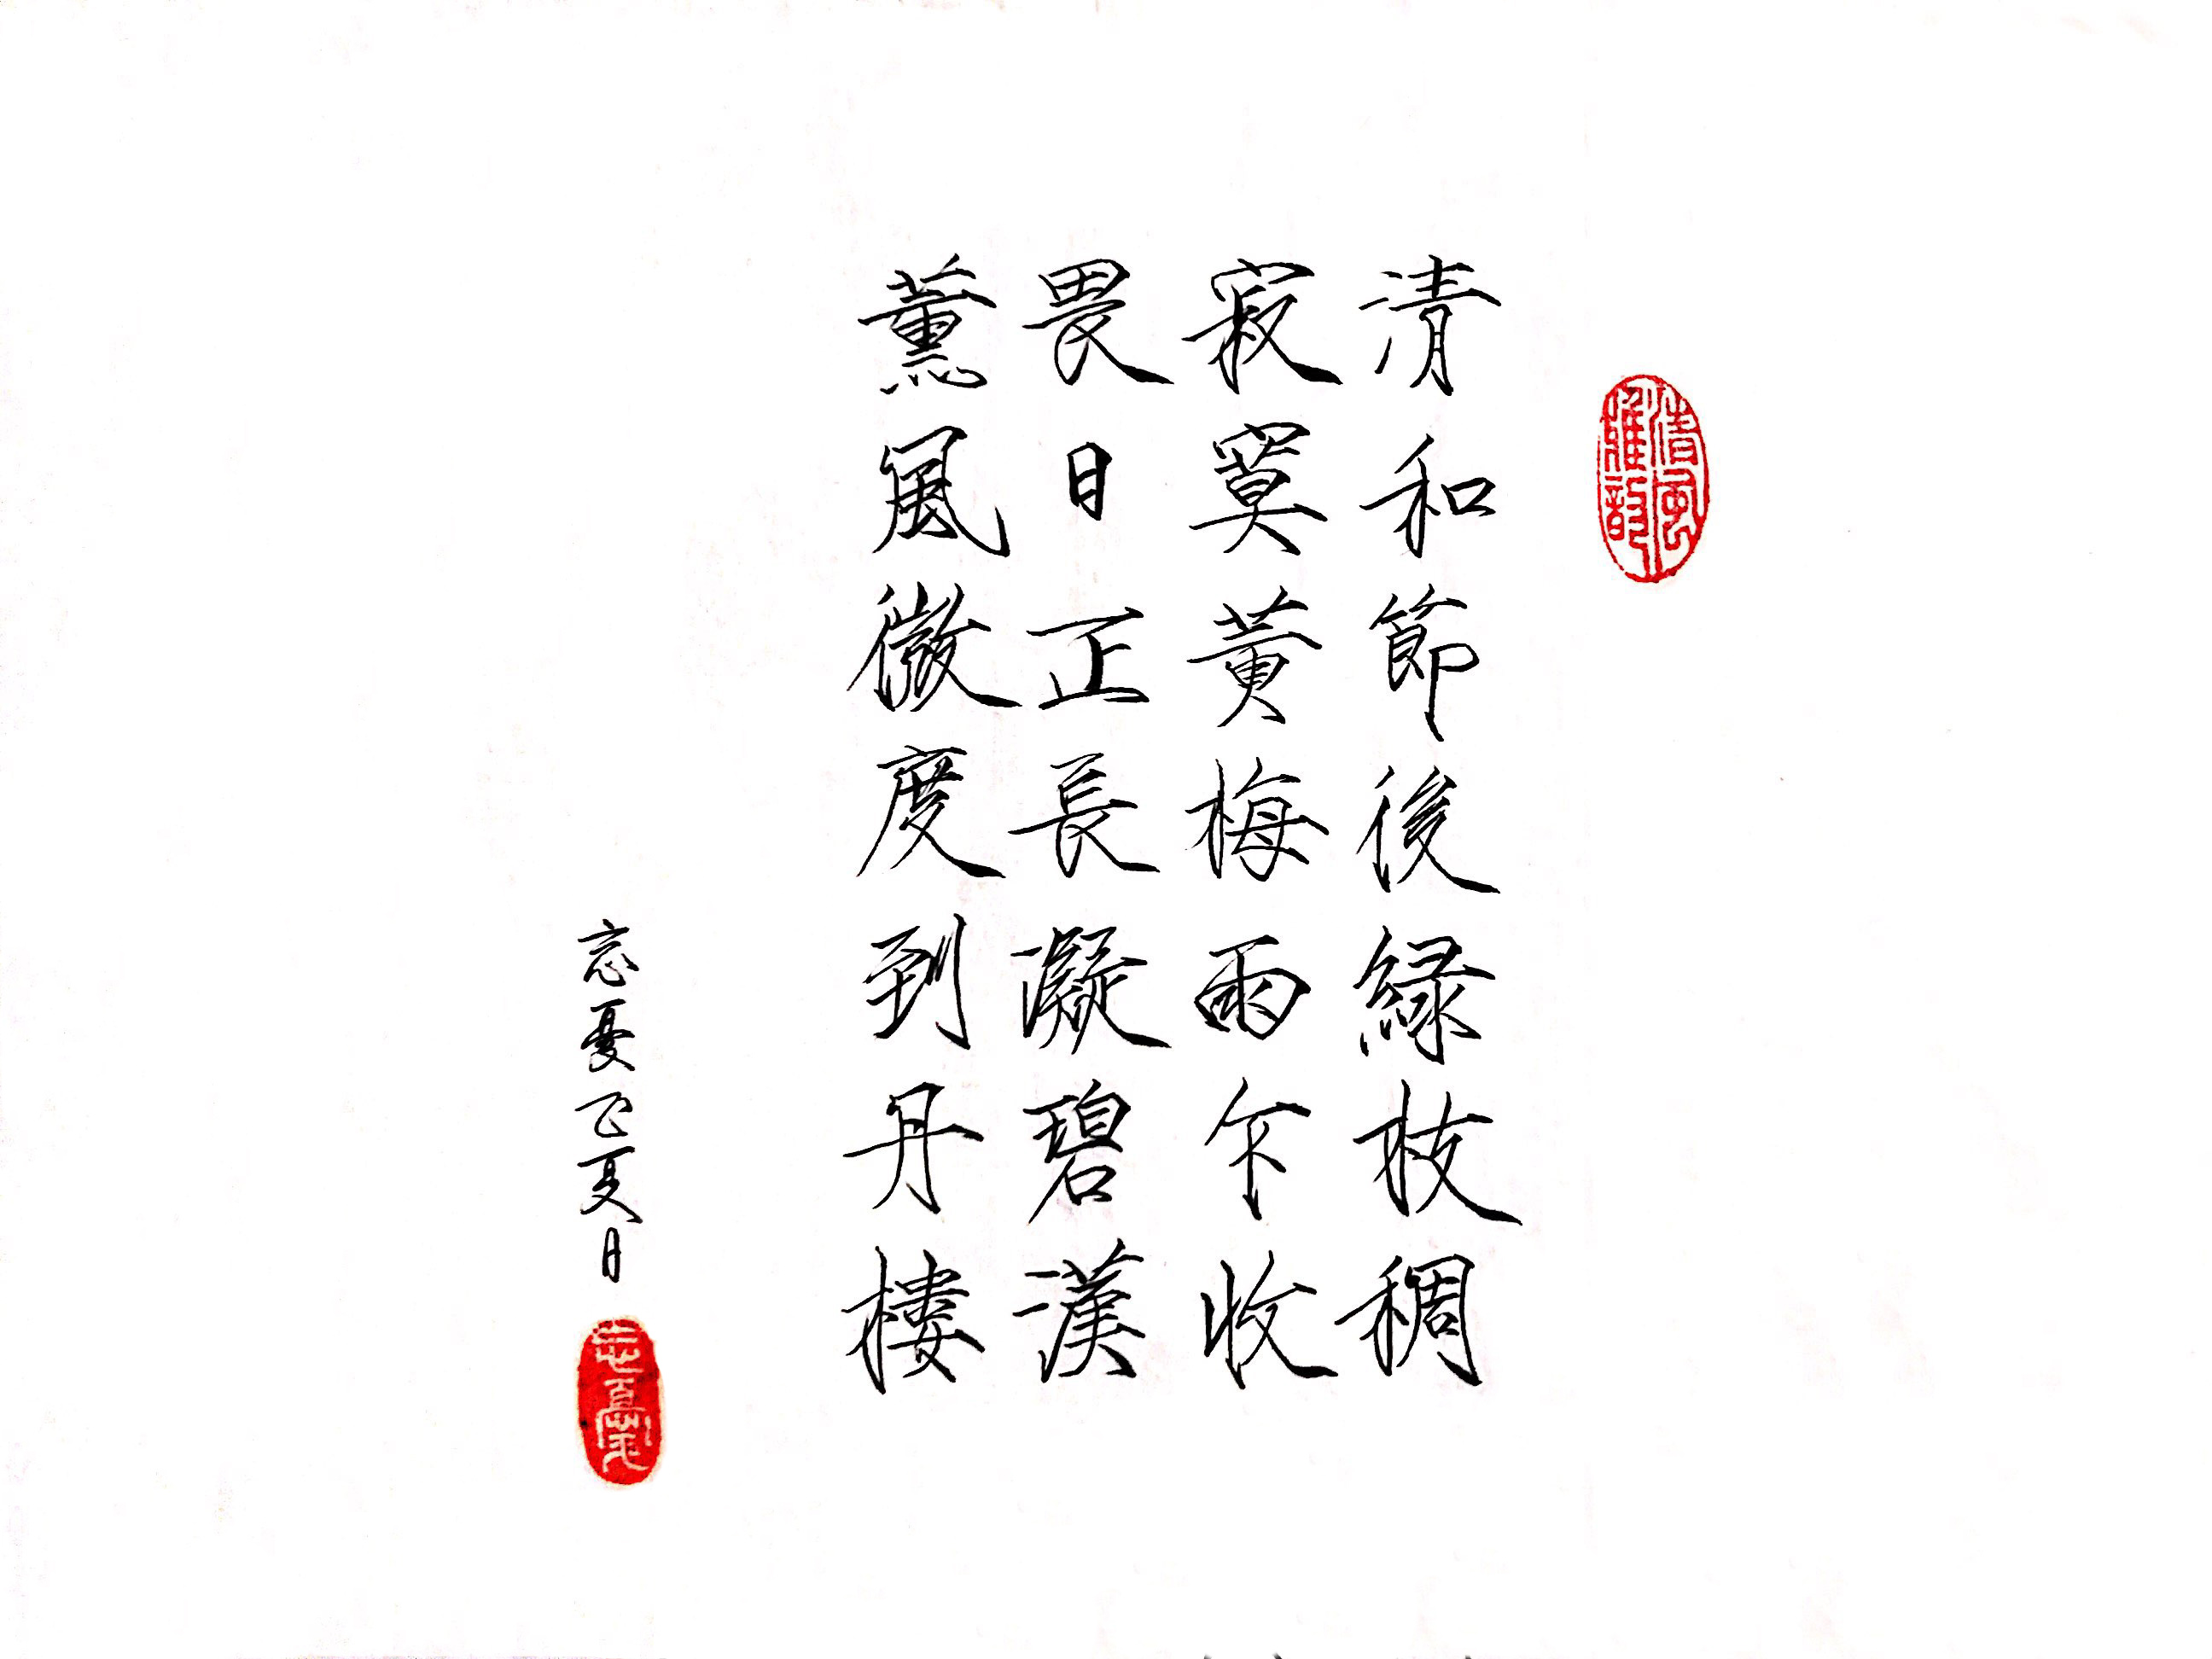 清和節後緑枝稠
寂寞黄梅雨乍收
畏日正長凝碧漢
薰風微度到丹樓
忘憂乙巳夏日
清風雅韵